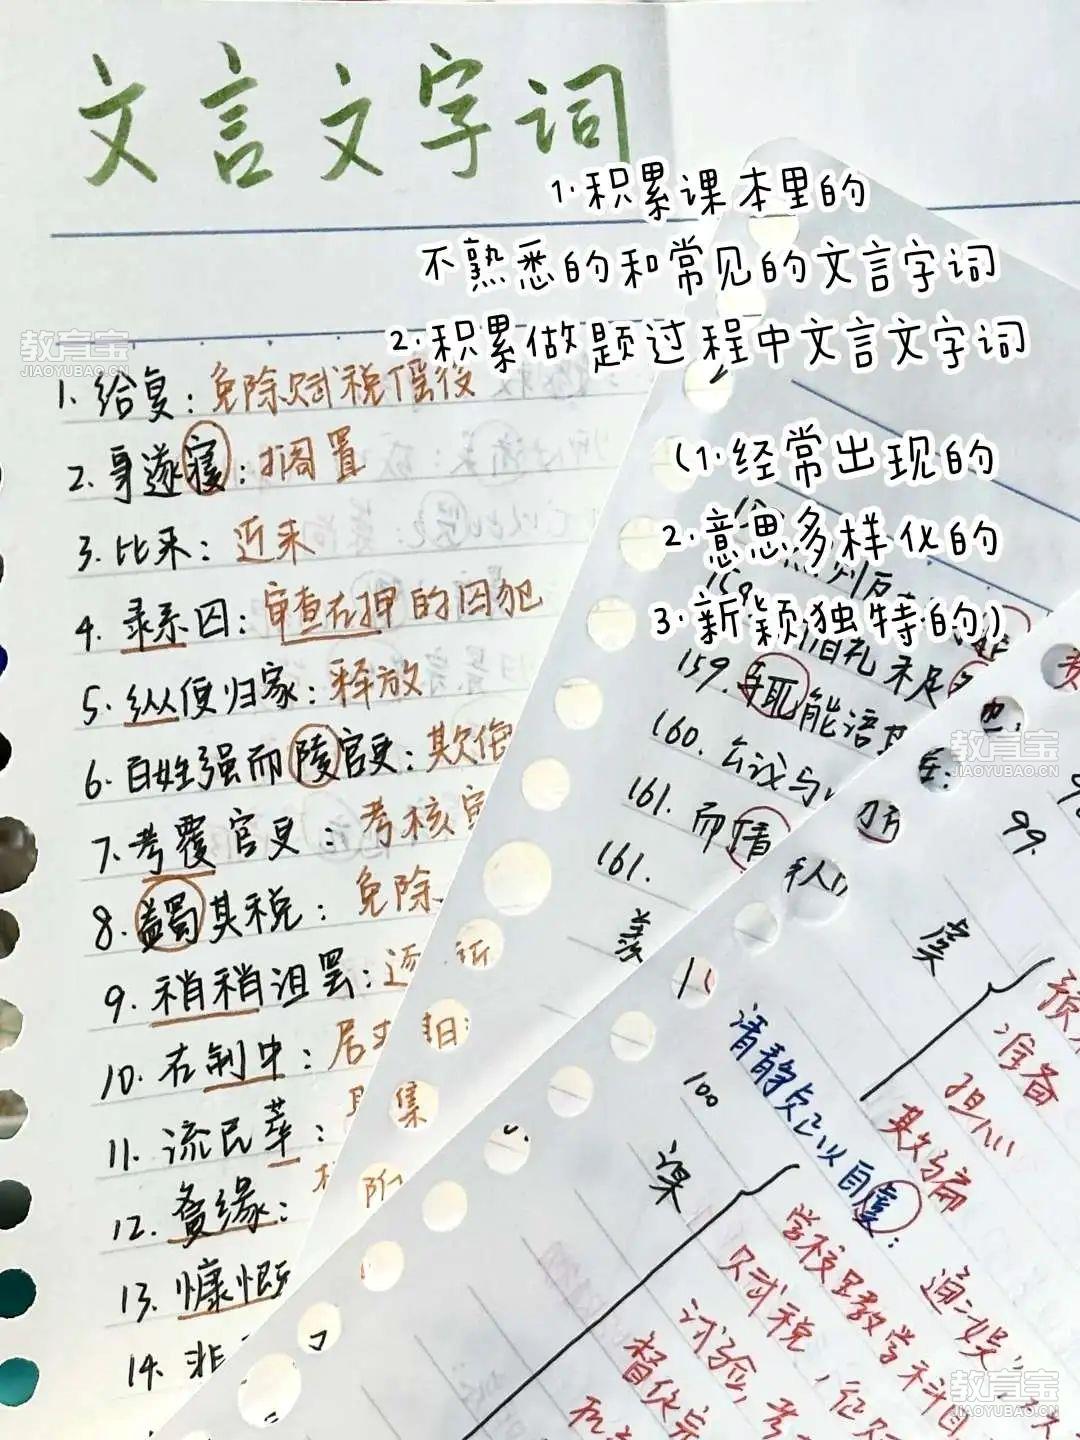 文言文字词
1.积累课本里的
不熟悉的和常见的文言字词
2.积累做题过程中文言文字词
(1.经常出现的
2.意思多样化的
3.新颖独特的)
教育宝
JIAOYUBAO.CN
1.给复:免除赋税徭役
2.事遂寝:搁置
3.比来:近来
4.录系囚:审查在押的囚犯
5.纵使归家:释放
6.百姓强而陵官吏:欺侮
7.考覆官吏:考核
8.蠲其税:免除
9.稍稍沮罢:逐
10.在制中:居
11.流民萃:
集
12.夤缘:
阶
13.慷慨
14.非
159.能语
160.会议与
161.而情
161.
羡
教育宝
JIAOYUBAO.CN
99.
虞
准备
担心
欺骗
清静贞正以自虞:
通“娱”
100
课
学校里教学科目
赋税,征
试验,考
督促完
教育宝
JIAOYUBAO.CN